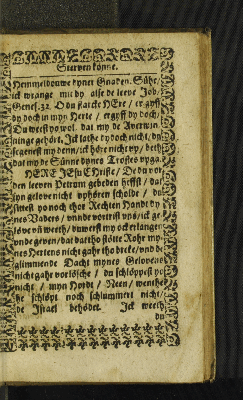 Sterven könne.
Hemmeldouwe dyner Gnaden. Sühe/
ick wrange mit dy alse de leeve Job.
Genes. 32. O du starcke HEre / ergyff
dy doch in myn Herte / ergyff dy doch/
Du weest yo wol. dat my de
ninge gehört. Ick lathe dy doch nicht/ du
segenest my denn/ ick höre nicht up / beth
dat my de Sünne dynes Trostes upga.
HERE JEsu Christe/ De du vor
den leeven Petrum gebeden heffst / dat
syn gelove nicht uphören scholde / du
sittest yo noch thor Rechten Handt dy-
nes Vaders / unnde vortrist uns/ ick ge-
löve
unde geven/ dat dat tho stötte Rohr my-
nes Hertens nicht gahr tho breke/ unde de
glimmende Dacht mynes Gelovens
nicht gahr vorlösche / du schlöppest yo
nicht / myn Hoyde / Neen/
he schlöpt noch schlummert nicht/
de Israel behödet. Ick weeth
du